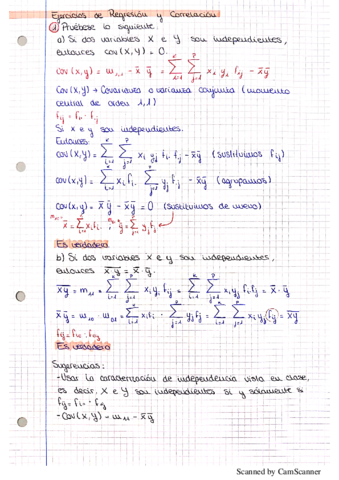 Ejercicios de Regresión y Correlación
① Pruébese lo siguiente:
a) Si dos variables X e Y son independientes,
entonces cov(x,y) = 0.
cov(x,y) = m₁,₁ - x̄ ȳ = Σᵢ₌₁ᵏ Σⱼ₌₁ᵖ xᵢ yⱼ fᵢⱼ - x̄ȳ
Cov(x,y) → Covarianza o varianza conjunta (momento
central de orden 1,1)
fᵢⱼ = fᵢ. · f.ⱼ
Si x e y son independientes.
Entonces:
cov(x,y) = Σᵢ₌₁ᵏ Σⱼ₌₁ᵖ xᵢ yⱼ fᵢ. f.ⱼ - x̄ȳ (sustituimos fᵢⱼ)
cov(x,y) = Σᵢ₌₁ᵏ xᵢ fᵢ. Σⱼ₌₁ᵖ yⱼ f.ⱼ - x̄ȳ (agrupamos)
cov(x,y) = x̄ȳ - x̄ȳ = 0 (sustituimos de nuevo)
x̄ = Σ xᵢ fᵢ. ; ȳ = Σ yⱼ f.ⱼ
Es verdadera
b) Si dos variables x e y son independientes,
entonces x̄ȳ = x̄ · ȳ.
x̄ȳ = m₁₁ = Σᵢ₌₁ᵏ Σⱼ₌₁ᵖ xᵢ yⱼ fᵢⱼ = Σᵢ₌₁ᵏ Σⱼ₌₁ᵖ xᵢ yⱼ fᵢ. f.ⱼ = x̄ · ȳ
x̄ ȳ = m₁₀ · m₀₁ = Σᵢ₌₁ᵏ xᵢ fᵢ. · Σⱼ₌₁ᵖ yⱼ f.ⱼ = Σᵢ₌₁ᵏ Σⱼ₌₁ᵖ xᵢ yⱼ fᵢⱼ = x̄ȳ
fᵢⱼ = fᵢ. · f.ⱼ
Es verdadera
Sugerencias:
- Usar la caracterización de independencia vista en clase,
es decir, X e Y son independientes si y solamente si
fᵢⱼ = fᵢ. · f.ⱼ
- Cov(X,Y) = m₁₁ - x̄ȳ
Scanned by CamScanner